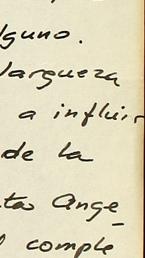 lguno.
largueza
a influir
de la
ta Ange
l comple